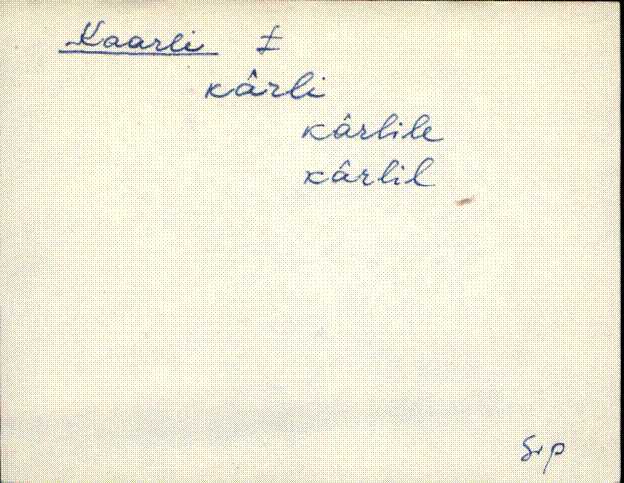 Kaarli I
kârli
kârlile
kârlil